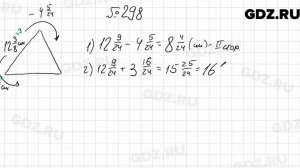 GDZ.RU
№298
- 4 5/24
12 3/8 см
см
1) 12 9/24 - 4 5/24 = 8 4/24 (см) - II стор.
2) 12 9/24 + 3 16/24 = 15 25/24 = 16
GDZ.RU